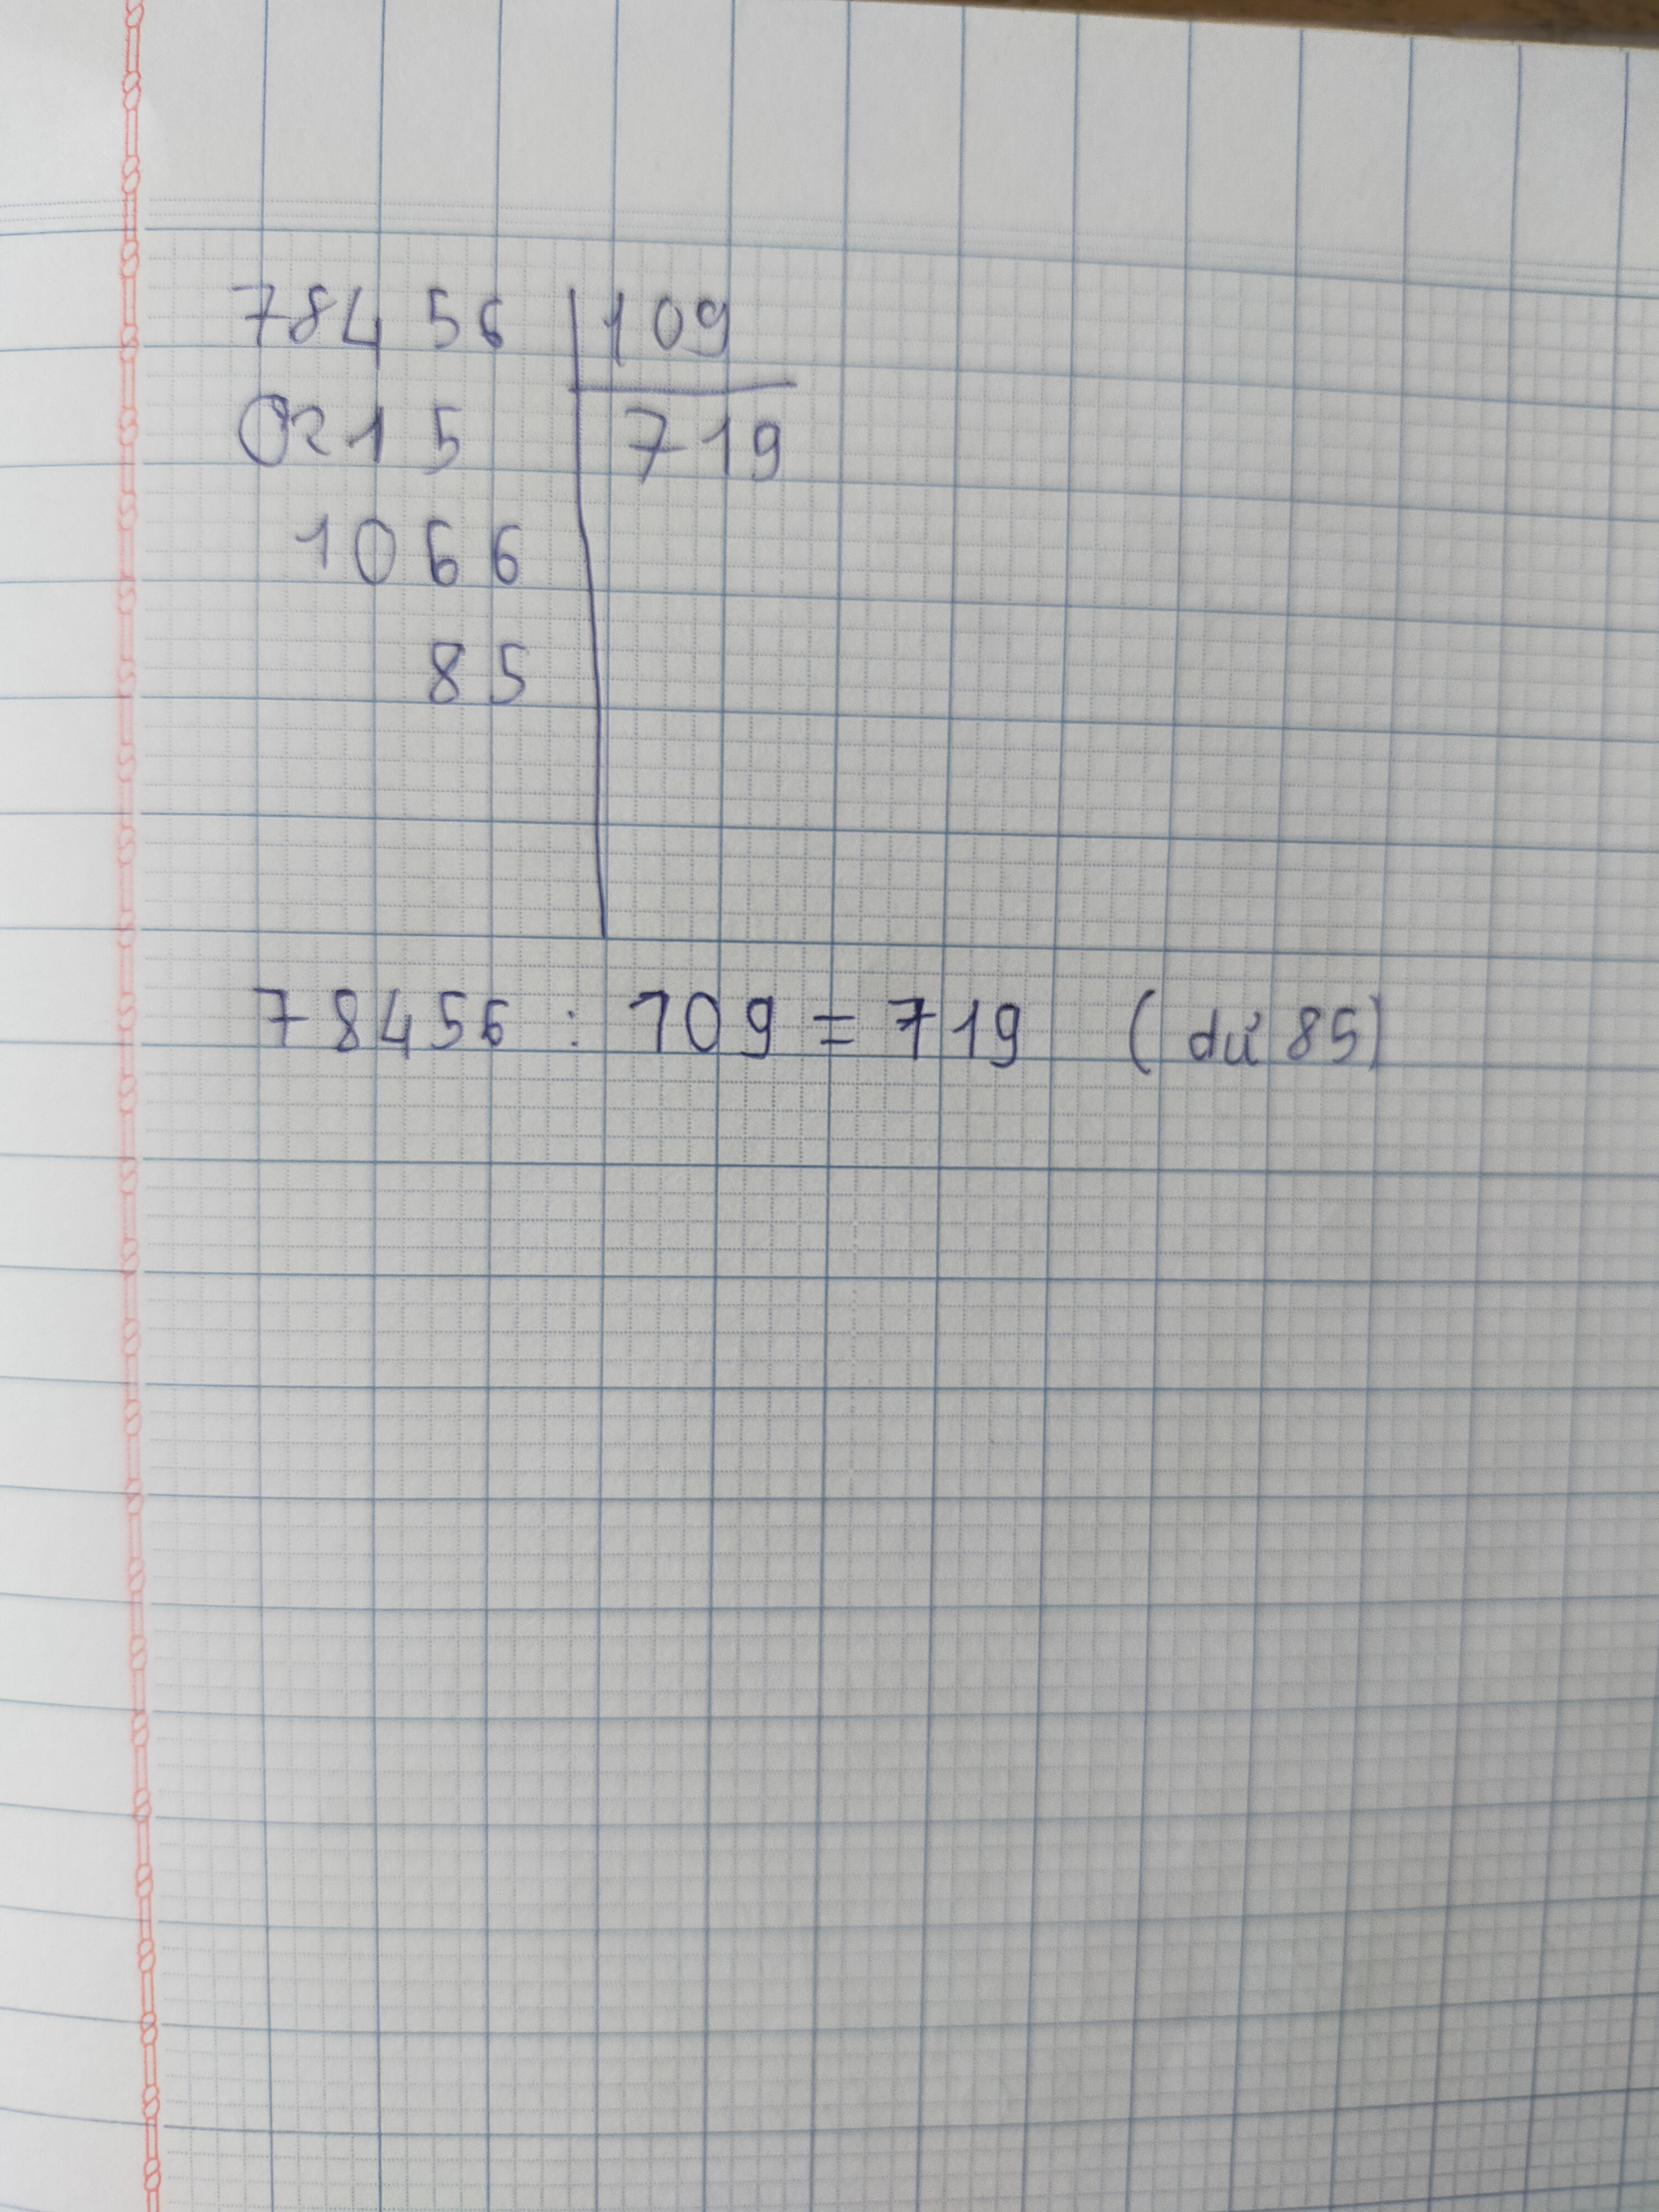 78456 109
0215 719
1066
85
78456 : 109 = 719 (dư 85)